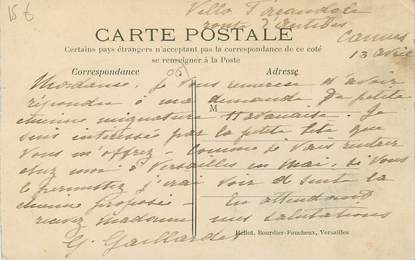 15 €
Villa Tarandole
route d'Antibes
Cannes
13 avril
CARTE POSTALE
Certains pays étrangers n'acceptent pas la correspondance de ce coté
se renseigner à la Poste
Correspondance
Adresse
M
Madame, Je vous remercie d'avoir
répondu à ma demande de petite
chienne mignature Havanaise. Je
suis intéressé par la petite bête que
vous m'offrez - Comme je vais rentrer
chez moi à Versailles en mai, si vous
le permettez j'irai voir de suite la
chienne proposée - En attendant
recevez madame mes salutations
G. Gaillardet
Héliot. Bourdier-Faucheux, Versailles